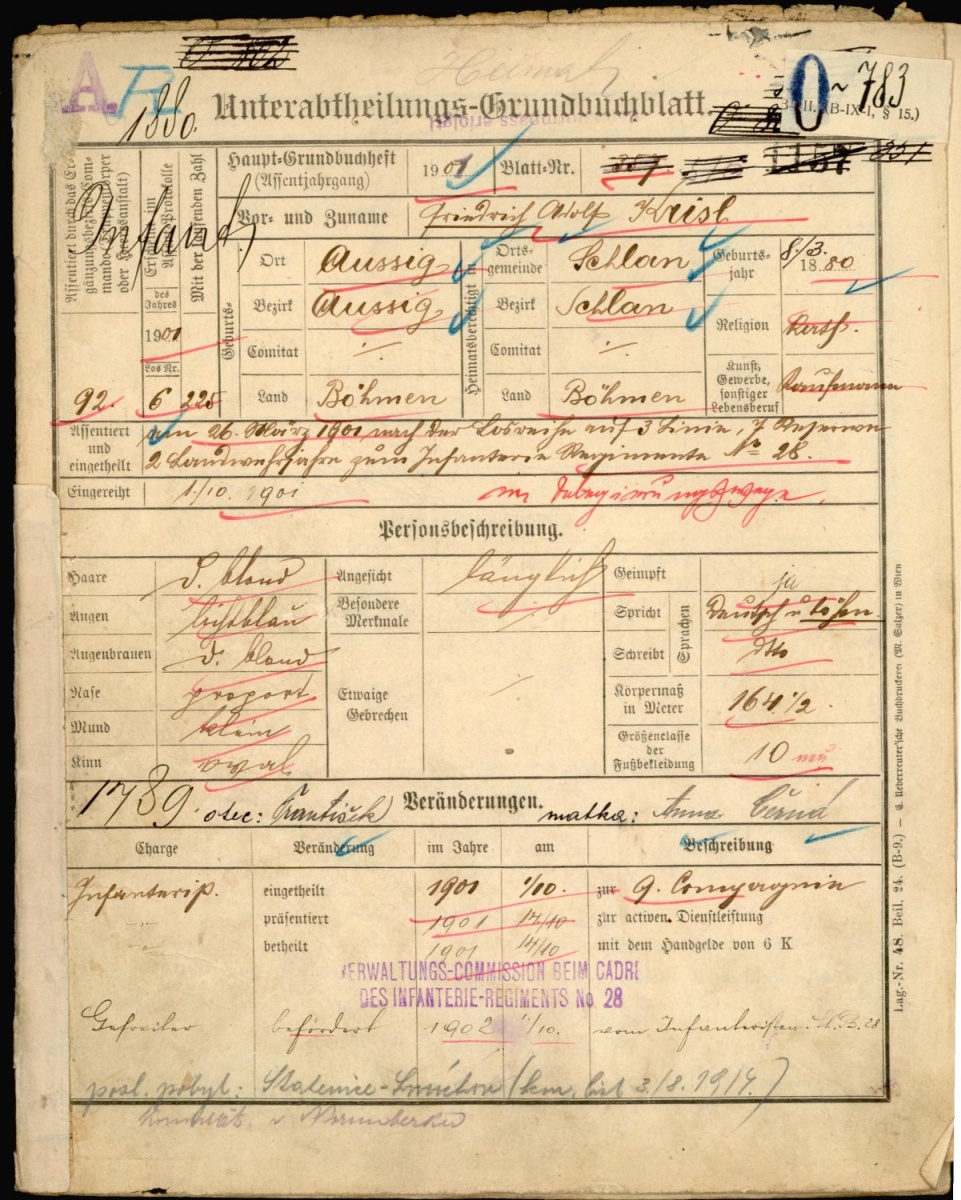 A.
1880.
Unterabtheilungs-Grundbuchblatt.
0 ~ 783
(B-IX-I, § 15.)
Haupt-Grundbuchheft
(Assentjahrgang)
1901
Blatt-Nr.
Assentiert durch das Ergänzungsbezirks-Commando (Heereskörper oder Heeresanstalt)
92.
des Jahres
1901
Los Nr.
6
Mit der laufenden Zahl
225
Vor- und Zuname
Friedrich Adolf Krisl
Geburts-
Ort
Aussig
Bezirk
Aussig
Comitat
./.
Land
Böhmen
Heimatsberechtigt in
Ortsgemeinde
Schlan
Bezirk
Schlan
Comitat
./.
Land
Böhmen
Geburtsjahr
8/3. 1880
Religion
Kath.
Kunst, Gewerbe, sonstiger Lebensberuf
Kaufmann
Assentiert und eingetheilt
am 26. März 1901 nach der Losreihe auf 3 Linie, 7 Reserve
2 Landwehrjahre zum Infanterie Regimente No 28.
Eingereiht
1./10. 1901
Personsbeschreibung.
Haare
d. blond
Angesicht
länglich
Geimpft
ja
Augen
lichtblau
Besondere Merkmale
Spricht
Sprachen
Deutsch u böhm.
Augenbrauen
d. blond
Schreibt
dtto
Nase
proport
Etwaige Gebrechen
./.
Körpermaß in Meter
164 1/2.
Mund
klein
Größenclasse der Fußbekleidung
10
Kinn
oval
1789.
otec: František
Veränderungen.
matka: Anna Černá
Charge
Veränderung
im Jahre
am
Beschreibung
Infanterist.
eingetheilt
1901
1/10.
zur 9. Compagnie
präsentiert
1901
14/10
zur activen Dienstleistung
betheilt
1901
14/10
mit dem Handgelde von 6 K
VERWALTUNGS-COMMISSION BEIM CADRE
DES INFANTERIE-REGIMENTS No 28
Gefreiter
befördert
1902
1/10.
vom Infanteristen.
posl. pobyt:
3/8. 1914)
v Normberku
Lag.-Nr. 48. Beil. 24. (B-9.) — C. Ueberreuter'sche Buchdruckerei (M. Salzer) in Wien